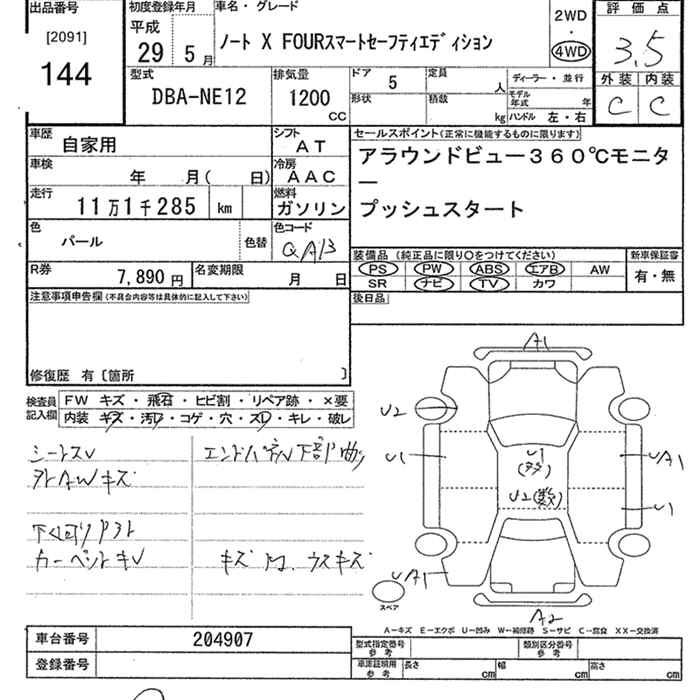 出品番号
[2091]
144
初度登録年月
平成
29 5月
車名・グレード
ノート X FOURスマートセーフティエディション
2WD
・
4WD
評価点
3.5
外装 内装
C C
型式
DBA-NE12
排気量
1200
CC
ドア 5
定員
人
形状
積載
kg
ディーラー・並行
モデル年式 年
ハンドル 左・右
車歴 自家用
シフト AT
車検 年 月( 日)
冷房 AAC
走行 11万1千285 km
燃料 ガソリン
色 パール
色替
色コード QA13
R券 7,890円
名変期限 月 日
セールスポイント(正常に機能するものに限ります)
アラウンドビュー360℃モニタ
ー
プッシュスタート
装備品 (純正品に限り○をつけてください)
PS PW ABS エアB AW
SR ナビ TV カワ
新車保証書
有・無
後日品
注意事項申告欄(不具合内容等は具体的に記入して下さい)
修復歴 有〔箇所 〕
検査員記入欄
FW キズ・飛石・ヒビ割・リペア跡・×要
内装 キズ・汚レ・コゲ・穴・スレ・キレ・破レ
シートスレ
外AWキズ
下廻りサビ
カーペットキレ
エンドパネル下部曲り
キズ 凹 ウスキズ
A1
U2
U1
U1
(多)
U2(数)
UA1
U1
UA1
A2
スペア
A−キズ E−エクボ U−凹み W−補修跡 S−サビ C−腐食 XX−交換済
車台番号 204907
登録番号
型式指定番号 参考
類別区分番号 参考
車庫証明用 参考
長さ cm
幅 cm
高さ cm